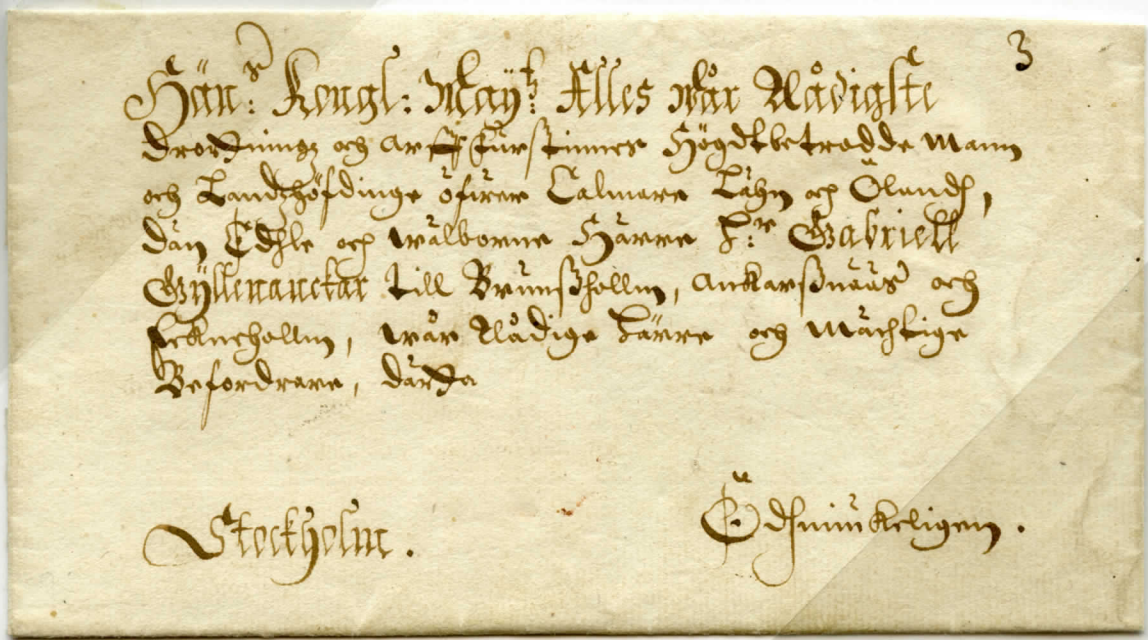 3
Hän:s Kongl: Maÿ:tz Alles wår Nådigste
Drottningz och Arff furstinnes Högdtbetrodde Mann
och Landzhöfdinge öfwer Calmare Lähn och Ölandh,
dän Edhle och wälborne Härre H:r Gabriell
Gÿllenanckar till Brunßhollm, Anckarßnääs och
hollm, wår Nådige Härre och Mächtige
Befordrare,
Stockholm.
Ödhmiukeligen.